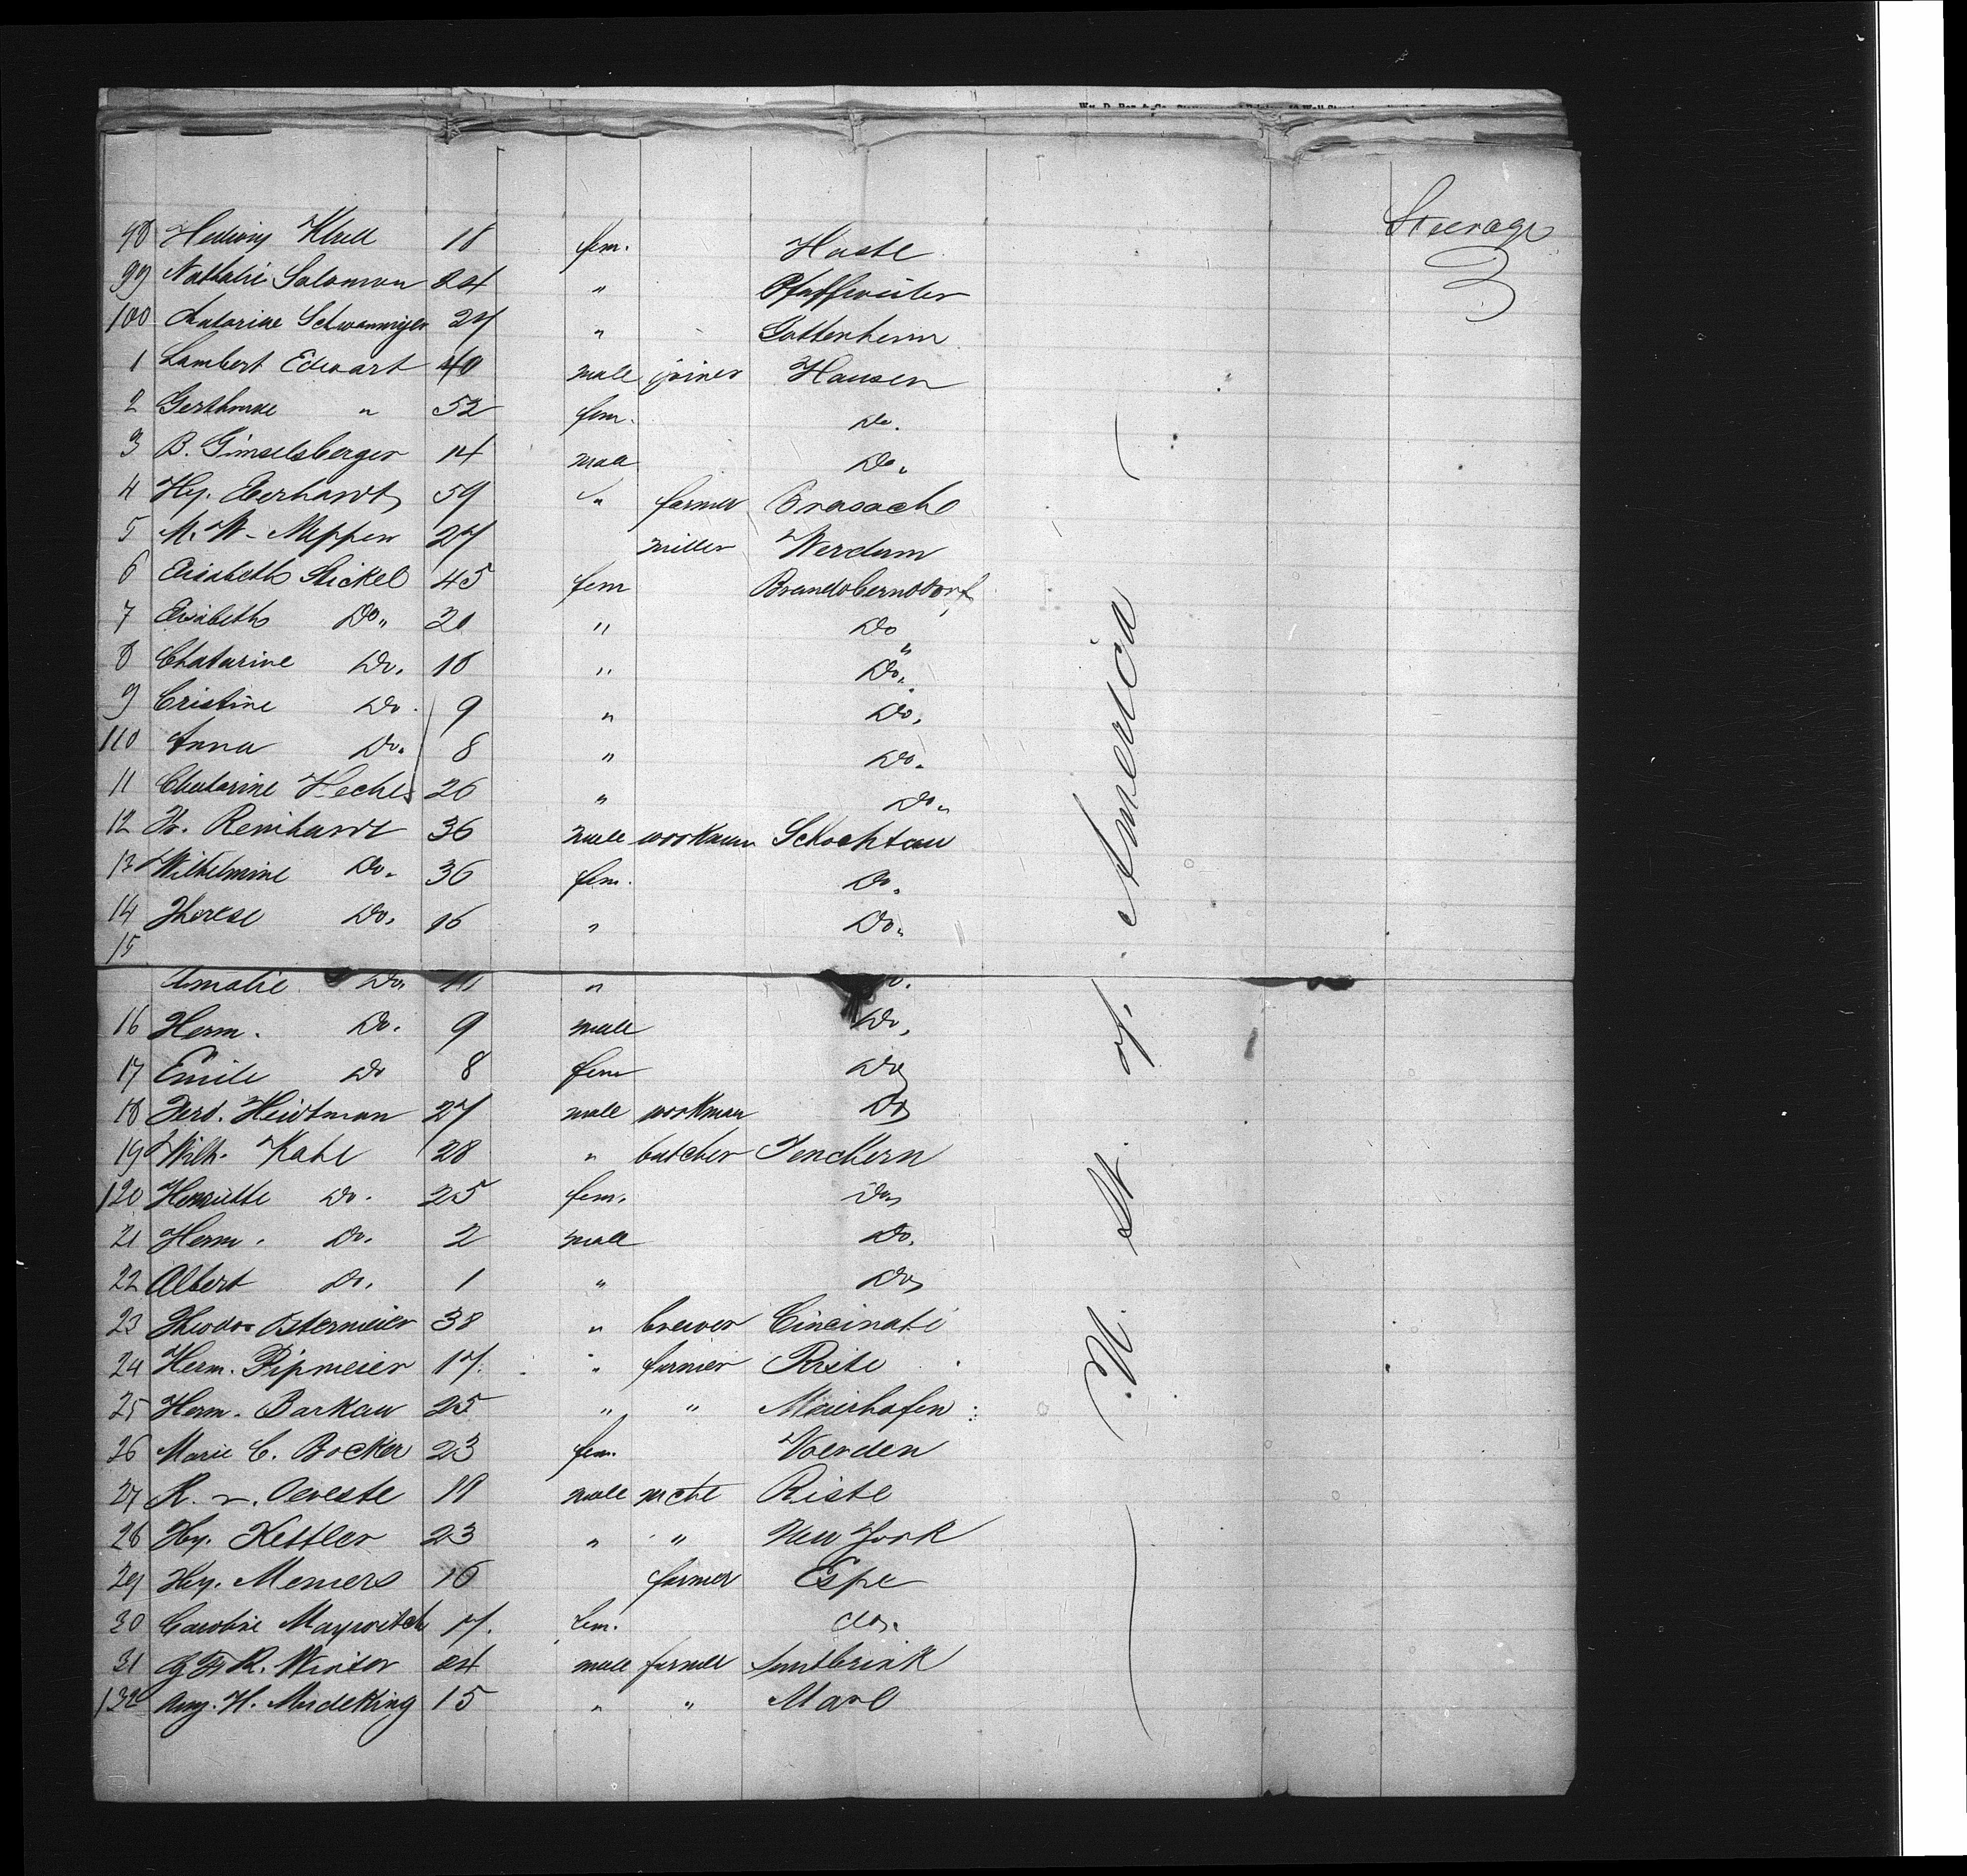 Steerage
3
98 Hedwig Klull 18 fem. Haste
99 Nathalie Salomon 24 " Pfaffweiler
100 Catarine Schwanmyer 27 " Gottenheim
1 Lambert Edwart 40 male joiner Hausen
2 " 52 fem. Do.
3 B. Gimselsberger 14 male Do.
4 Hy. Eberhardt 59 " farmer
5 M. W. Meppen 27 miller Werdum
6 Elisabeth Stickel 45 fem Brandoberndorf
7 Elisabeth Do. 20 " Do
8 Chatarine Do. 18 " Do.
9 Cristine Do. 9 " Do.
110 Anna Do. 8 " Do.
11 Chatarine Heches 26 " Do.
12 Fr. Reinhardt 36 male workman Schochtau
13 Wilhelmine Do. 36 fem. Do.
14 Therese Do. 16 " Do.
15
Amalie Do. 11 " Do.
16 Herm. Do. 9 male Do.
17 Emile Do 8 fem Do
18 Ferd. Heidtman 27 male workman Do
19 Wilh. Kahl 28 " butcher Jenckern
120 Henriette Do. 25 fem. Do
21 Herm. Do. 2 male Do.
22 Albert Do. 1 " Do
23 Theodor Ostermeier 38 " brewer Cincinati
24 Herm. Pipmeier 17. " farmer Riste
25 Herm. Barkau 25 " " Maierhafen
26 Marie C. Bocker 23 fem. Voerden
27 R. v. Oeveste 18 male mcht Riste
28 Hy. Kettler 23 " " New York
29 Hy. Meners 16 farmer Espe
30 Caroline Maywitch 17. fem. do.
31 Winter 24 male farmer
132 Aug. H. Mudeking 15 " " Marl
U. St. of. America